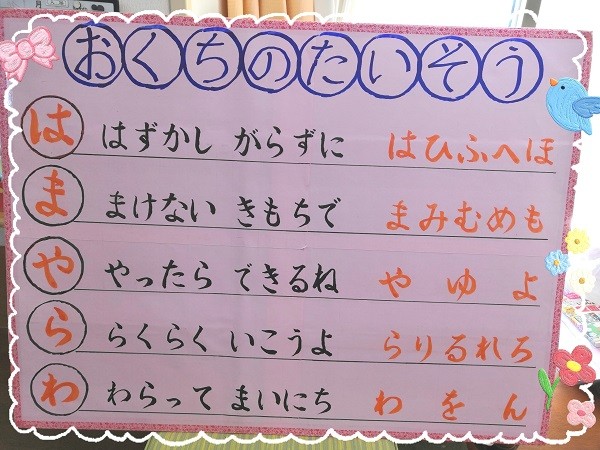 おくちのたいそう
は はずかし がらずに はひふへほ
ま まけない きもちで まみむめも
や やったら できるね や ゆ よ
ら らくらく いこうよ らりるれろ
わ わらって まいにち わ を ん